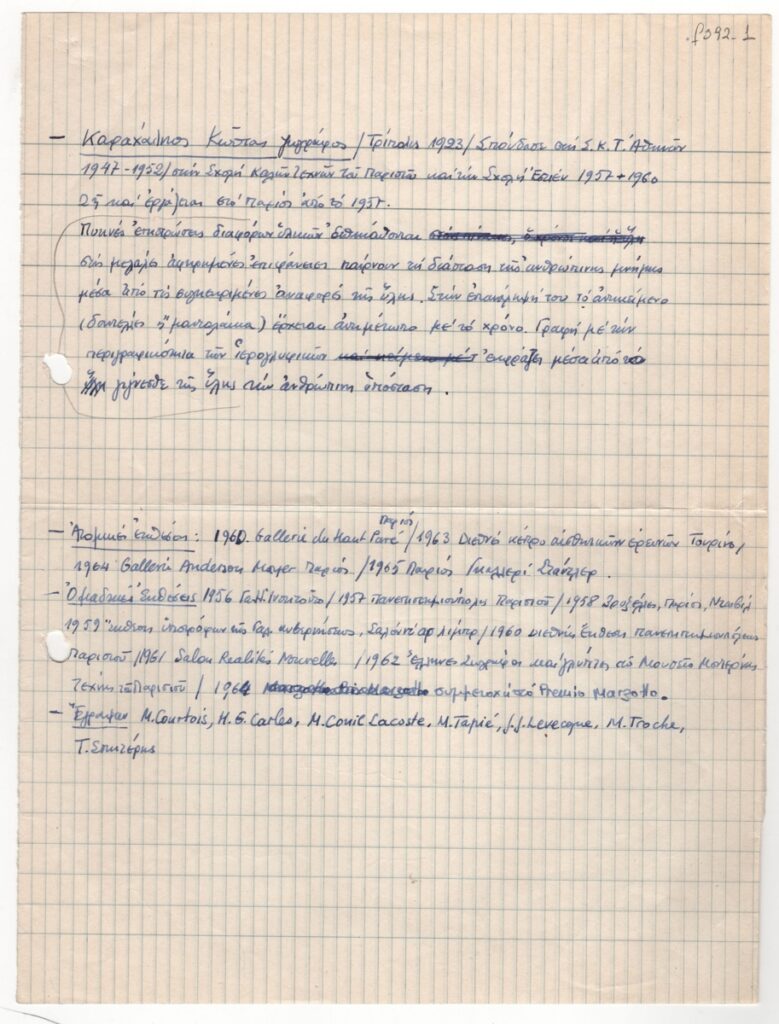 f392-1
– Καραχάλιος Κώστας ζωγράφος / Τρίπολις 1923 / Σπούδασε στή Σ.Κ.Τ. Ἀθηνῶν
1947-1952 / στήν Σχολή Καλῶν Τεχνῶν τοῦ Παρισιοῦ καί τήν Σχολή Ἐστιέν 1957 + 1960
Ζῆ καί ἐργάζεται στό Παρίσι ἀπό τό 1957.
Πυκνές ἐπιστρώσεις διαφόρων ὑλικῶν
στίς μεγάλες ἀφηρημένες ἐπιφάνειες παίρνουν τή διάσταση τῆς ἀνθρώπινης μνήμης
μέσα ἀπό τίς συγκεκριμένες ἀναφορές τῆς ὕλης. Στήν ἐπανάληψή του τό ἀντικείμενο
(δαντέλες ἤ μανταλάκια) ἔρχεται ἀντιμέτωπο μέ τό χρόνο. Γραφή μέ τήν
περιγραφικότητα τῶν ἱερογλυφικῶν ἐκφράζει μέσα ἀπό τό
γίγνεσθε τῆς ὕλης τήν ἀνθρώπινη ὑπόσταση.
– Ἀτομικές ἐκθέσεις: 1960. Gallerie du Haut Pavé Παρίσι / 1963 Διεθνές κέντρο αἰσθητικῶν ἐρευνῶν Τουρίνο,
1964 Gallerie Anderson Mayer Παρίσι / 1965 Παρίσι Γκαλλερί Στάντλερ.
– Ὁμαδικές Ἐκθέσεις 1956 Γαλ. Ινστιτοῦτο / 1957 Πανεπιστημιούπολις Παρισιοῦ / 1958 Βρυξέλλες, Παρίσι, Ντωβίλ
1959 Ἔκθεση ὑποτρόφων τῆς Γαλ. κυβερνήσεως, Σαλόν τ' ἄρ λίμπρ / 1960 Διεθνής Ἔκθεσις Πανεπιστημιουπόλεως
Παρισιοῦ / 1961 Salon Realités Nouvelles / 1962 Ἕλληνες ζωγράφοι καί γλύπτες στό Μουσεῖο Μοντέρνας
Τέχνης τοῦ Παρισιοῦ / 1964 συμμετοχή στό Premio Marzotto.
– Ἔγραψαν M. Courtois, H. G. Carles, M. Conil Lacoste, M. Tapié, J.J. Levecque, M. Troche,
Τ. Σπητέρης